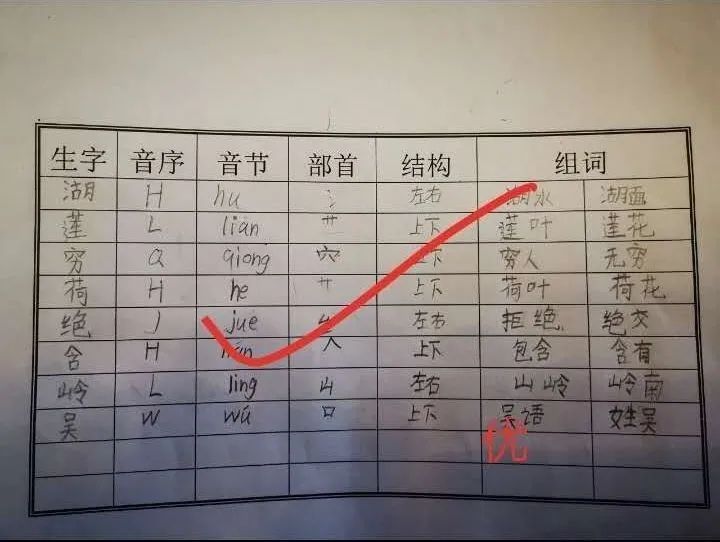 生字 音序 音节 部首 结构 组词
湖 H hu 氵 左右 湖水 湖面
莲 L lián 艹 上下 莲叶 莲花
穷 Q qiong 穴 上下 穷人 无穷
荷 H he 艹 上下 荷叶 荷花
绝 J jué 纟 左右 拒绝 绝交
含 H hán 人 上下 包含 含有
岭 L ling 山 左右 山岭 岭南
吴 W wú 口 上下 吴语 姓吴
优